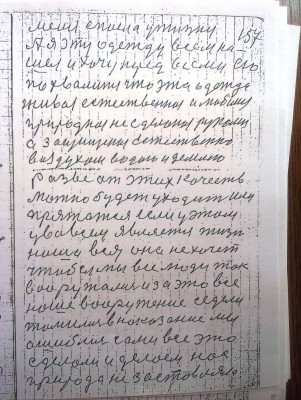 меня спасла у жизни 157
А я эту одежду всем на
шел и хочу перед всеми его
похвалить что эта одежда
живая естественная и
природная не сделана руками
а защищена естественно
воздухом водою и землею
разве от этих качеств
можно будет уходить или
прятатся если у этом
у во всем является жизн
наша вся она не хочет
чтобы мы все люди так
вооружали и за это все
наше вооружение сидели
в наказание мы
ошиблис сами все это
сделали и делаем нас
природа не заставляла